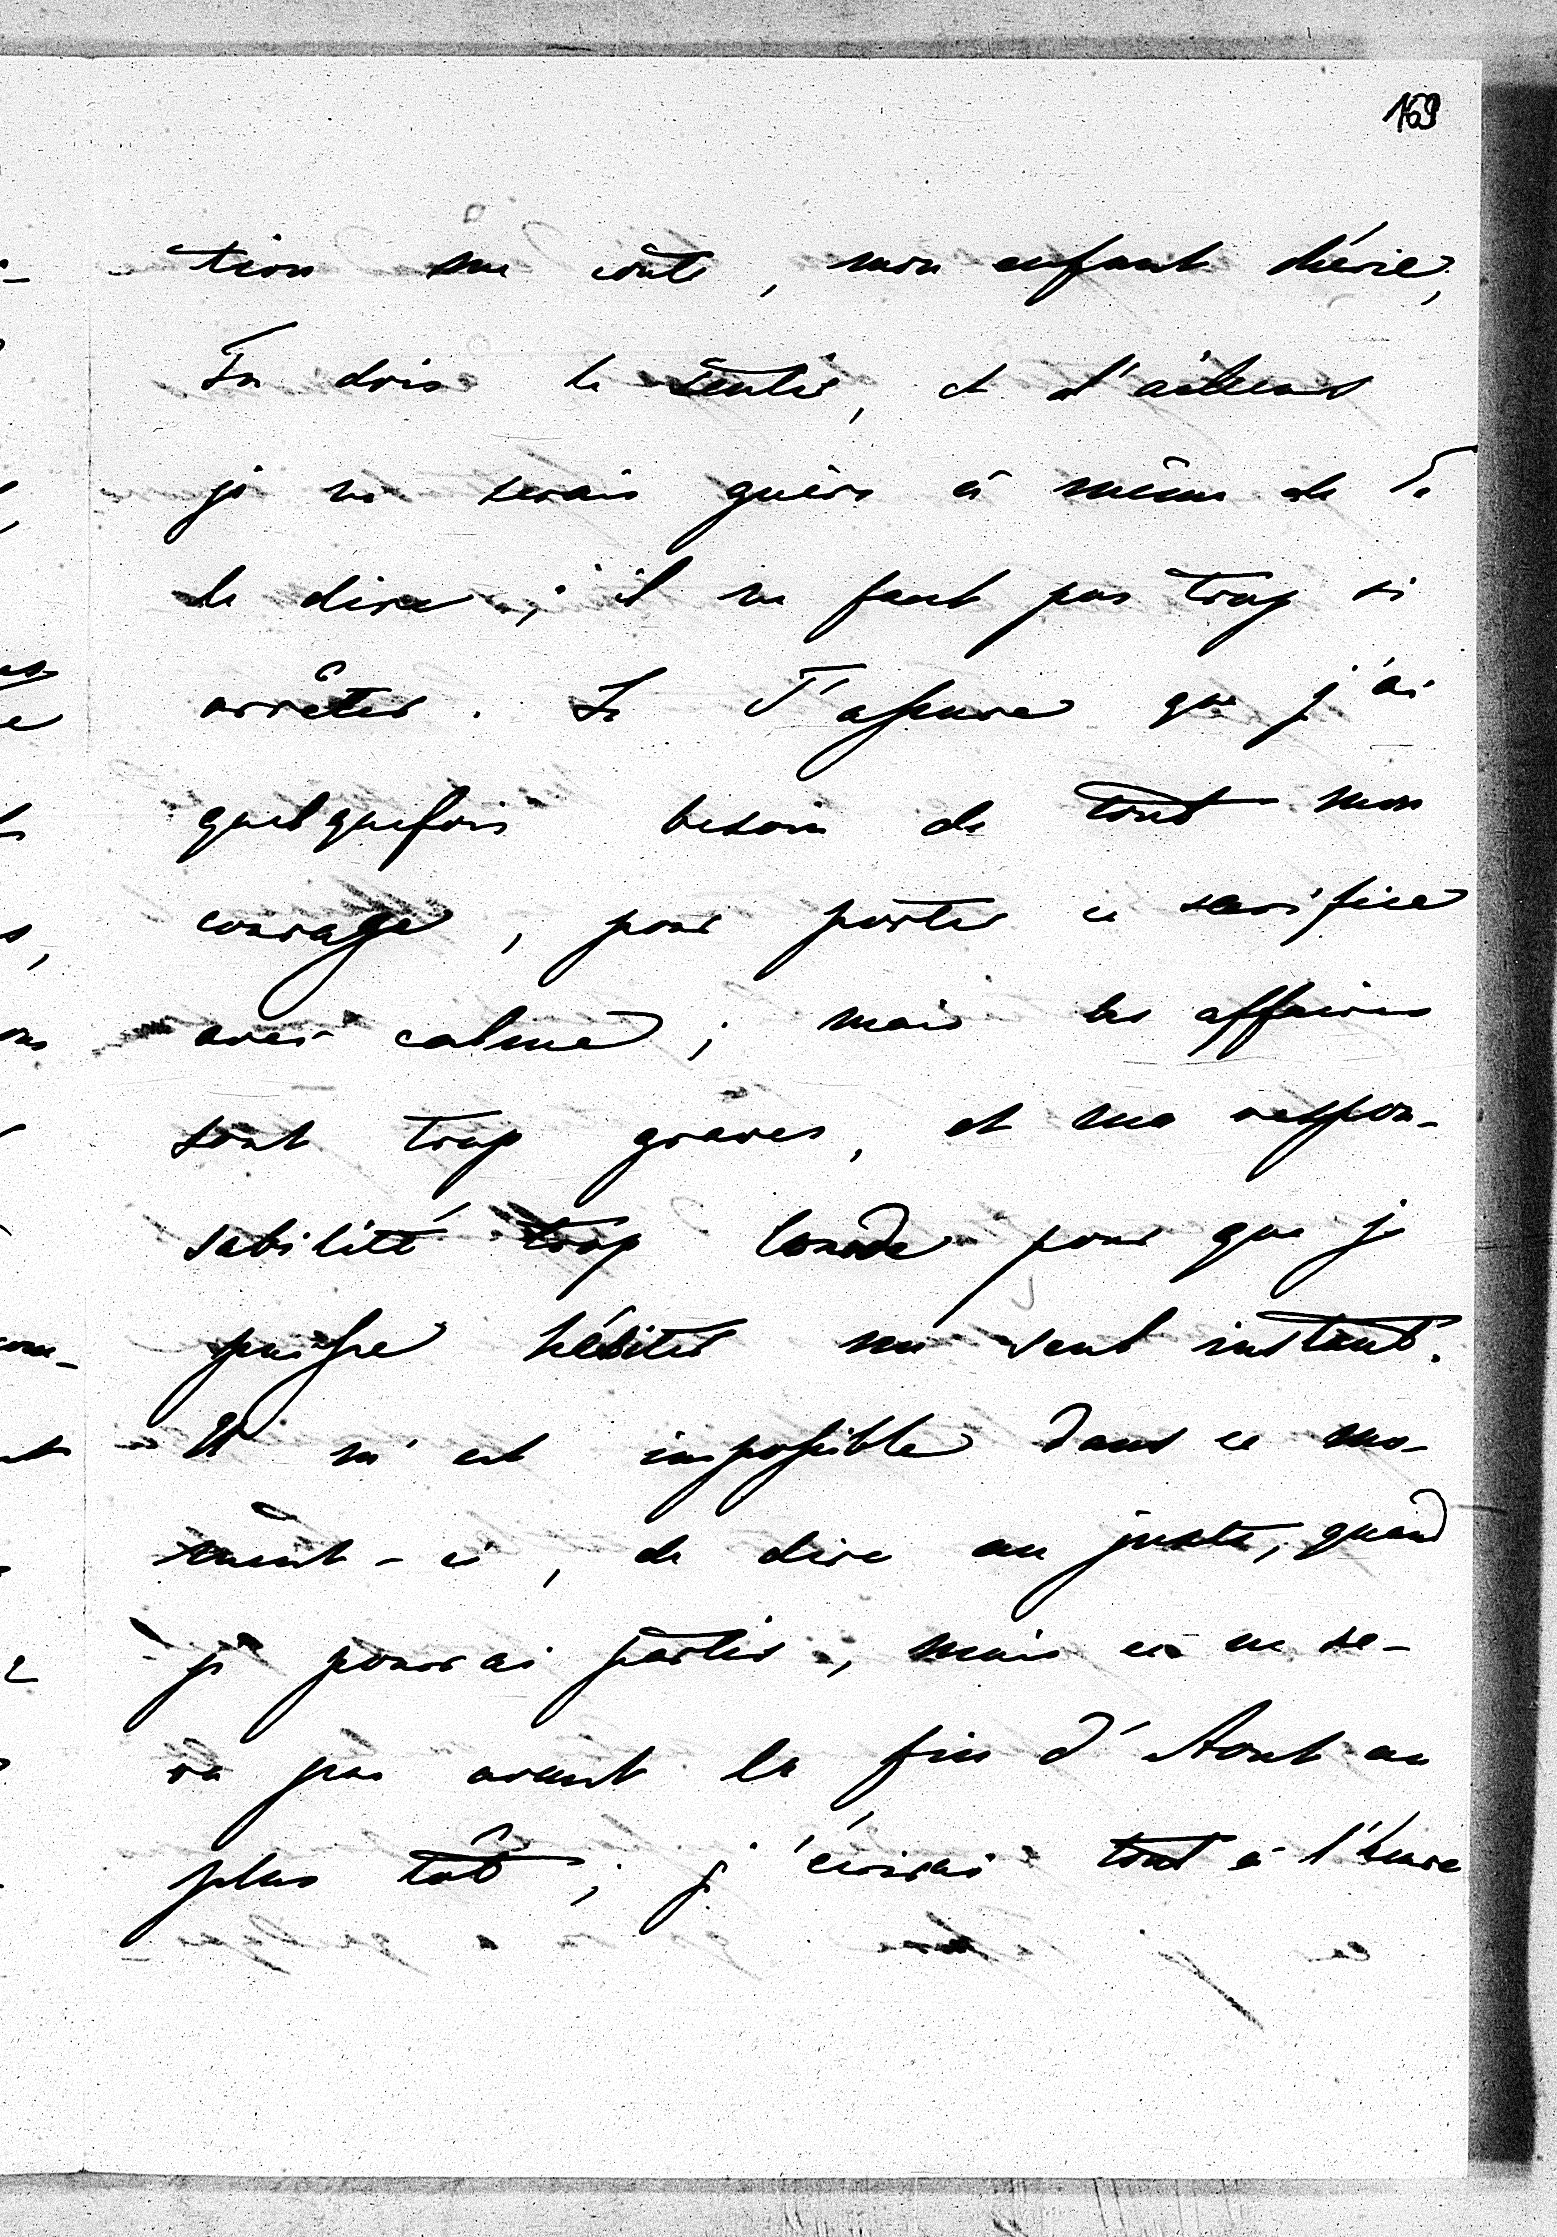 169
tion me coûte, mon enfant chérie,
Tu dois le sentir, et d'ailleurs
je ne serais guère à même de Te
le dire ; il ne faut pas trop s'i
arrêter. Je T'assure que j'ai
quelquefois besoin de tout mon
courage, pour porter ce sacrifice
avec calme ; mais les affaires
sont trop graves, et ma respon-
sabilité trop lourde pour que je
puisse hésiter un seul instant.
Il m'est impossible dans ce mo-
ment-ci, de dire au juste, quand
je pourrai partir, mais ce ne se-
ra pas avant la fin d'Aout au
plus tôt ; j'écrirai tout à l'heure